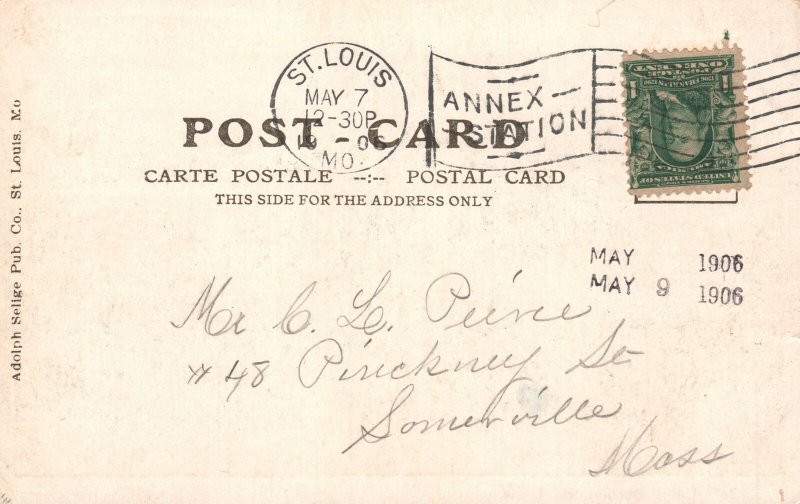 ST. LOUIS
MAY 7
12-30P
19 - 06
MO.
ANNEX
STATION
POST CARD
CARTE POSTALE --:-- POSTAL CARD
THIS SIDE FOR THE ADDRESS ONLY
ONE CENT
POSTAGE
FRANKLIN
UNITED STATES OF
AMERICA
MAY 1906
MAY 9 1906
Mr C. L. Peirce
# 48 Pinckney St
Somerville
Mass
Adolph Selige Pub. Co., St. Louis, Mo